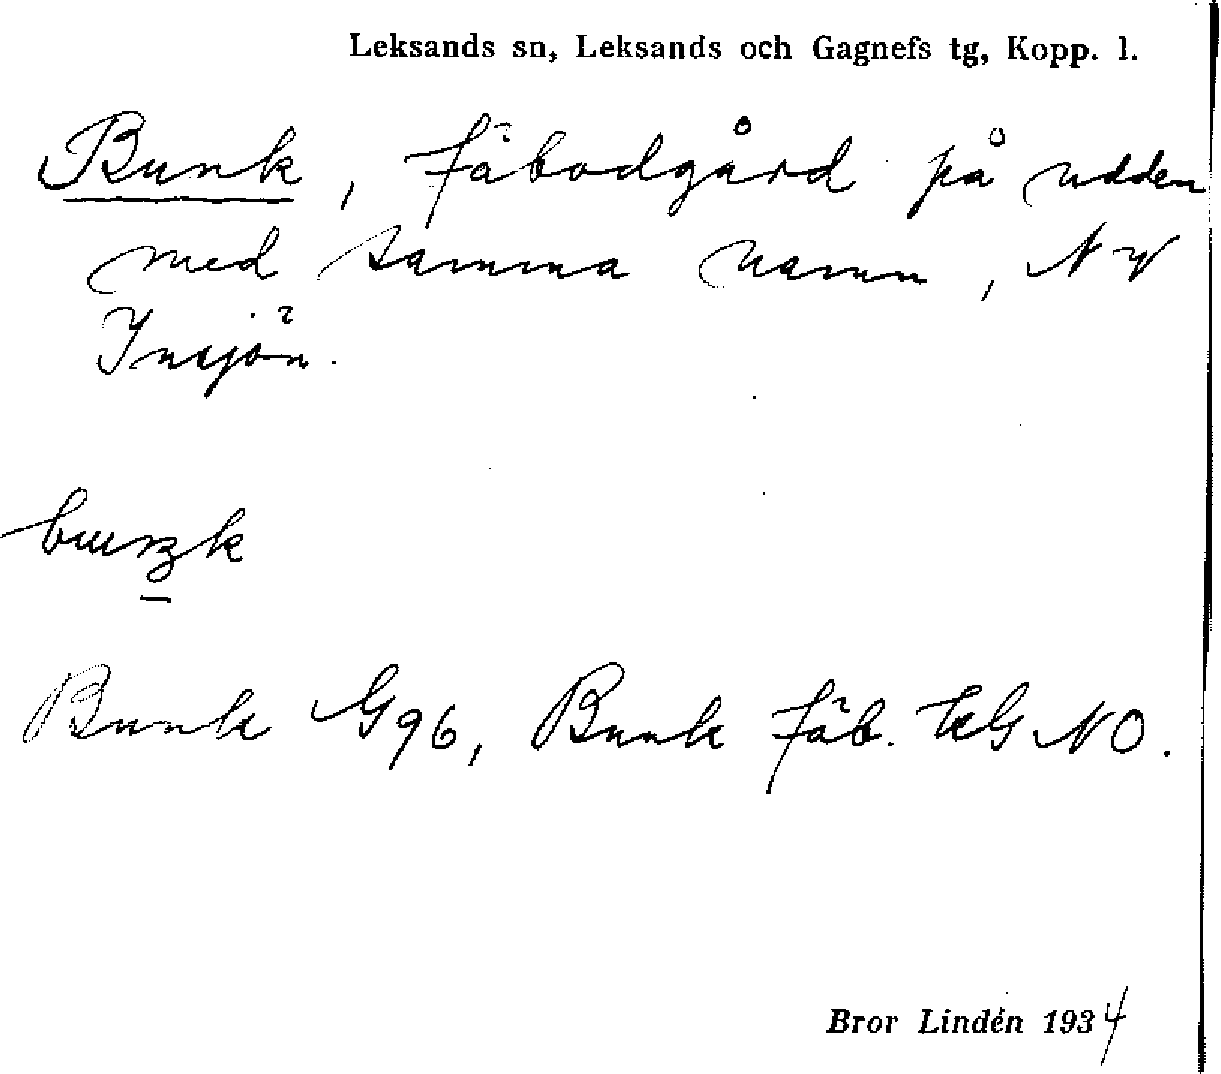 Leksands sn, Leksands och Gagnefs tg, Kopp. l.
Bunk, fäbodgård på udden
med samma namn, NV
Insjön.
Bunk G96, Bunk fäb. KG NO.
Bror Lindén 1934